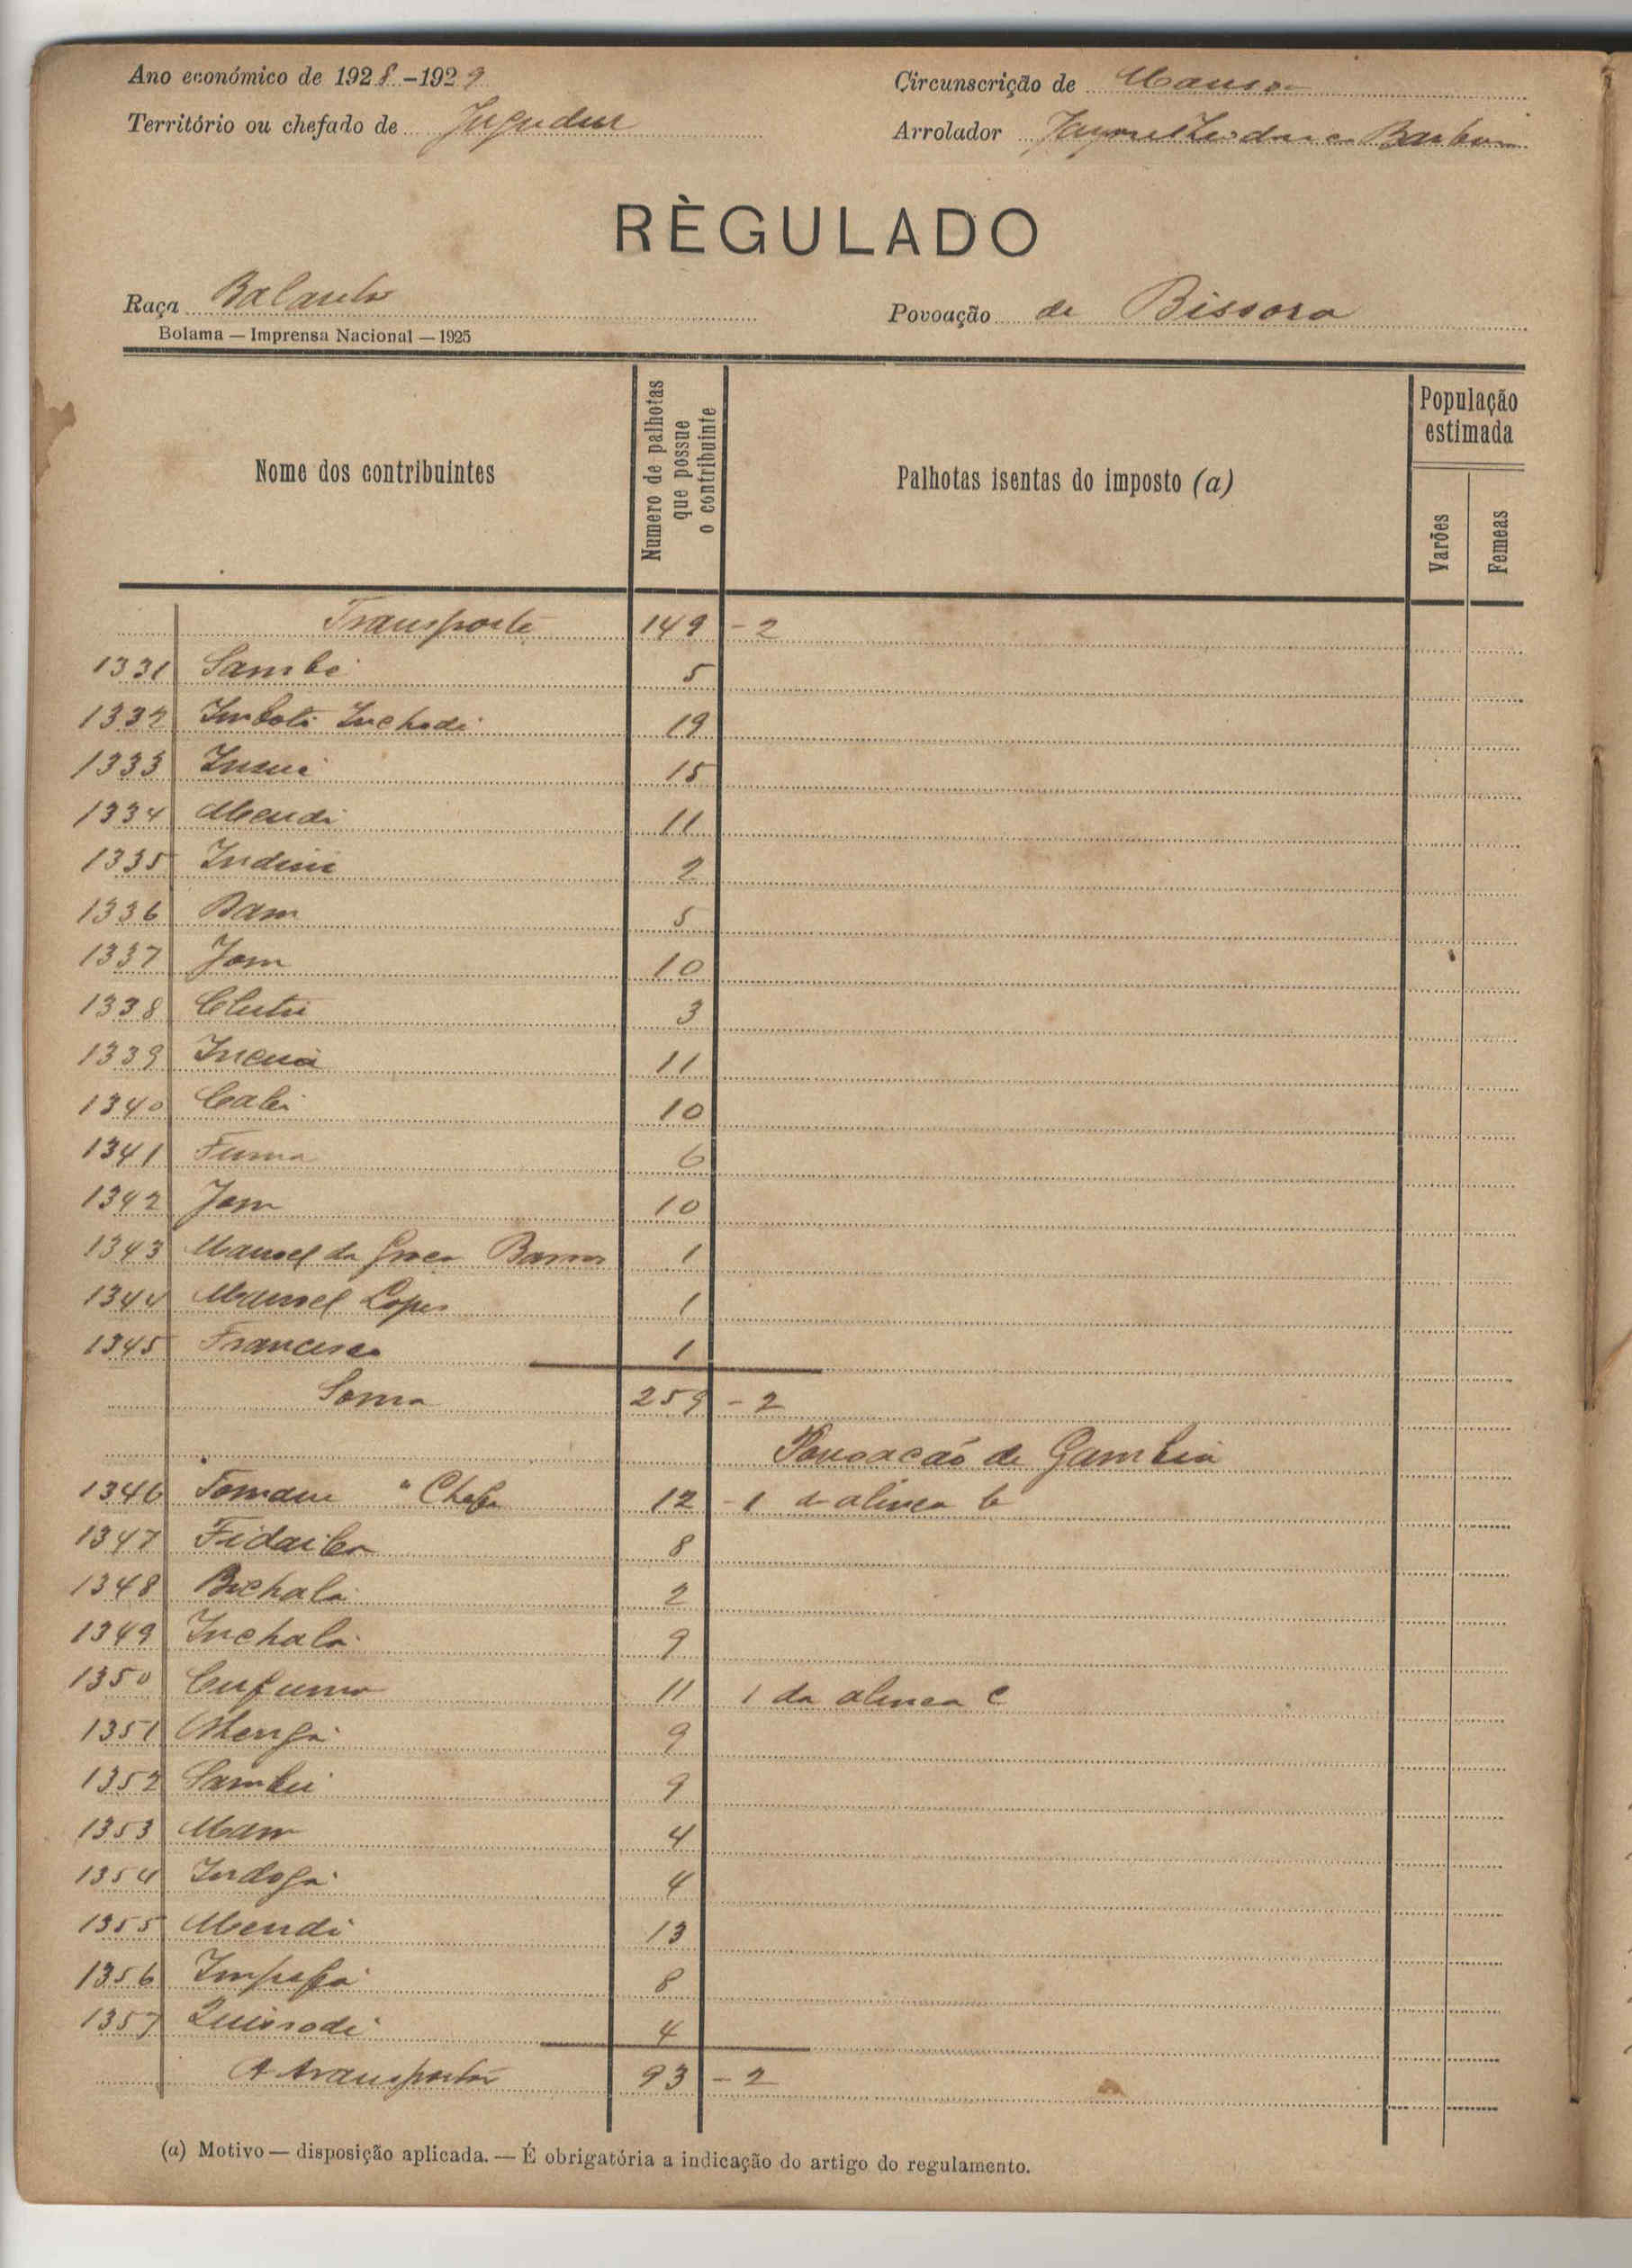 Ano económico de 1928.-1929
Circunscrição de Mansoa
Território ou chefado de Jugudur
Arrolador Jayme Barbosa
RÈGULADO
Raça Balanta
Povoação de Bissora
Bolama — Imprensa Nacional — 1925
Nome dos contribuintes
Numero de palhotas que possue o contribuinte
Palhotas isentas do imposto (a)
População estimada
Varões
Femeas
Transporte 149 - 2
1331 Sambé 5
1332 Imboti Inchodi 19
1333 15
1334 Mendi 11
1335 2
1336 Bam 5
1337 Jom 10
1338 3
1339 11
1340 Cabi 10
1341 Fuma 6
1342 Jom 10
1343 Manoel da Barros 1
1344 Manoel Lopes 1
1345 Francisco 1
Soma 259 - 2
Povoacão de Gambia
1346 Chefe 12 - 1 da alinea b
1347 8
1348 Bichala 2
1349 Inchala 9
1350 11 1 da alinea c
1351 9
1352 9
1353 4
1354 4
1355 Mendi 13
1356 8
1357 4
A transportar 93 - 2
(a) Motivo — disposição aplicada. — É obrigatória a indicação do artigo do regulamento.